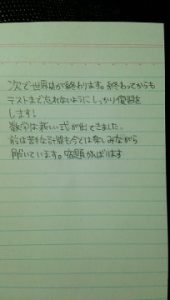 次で世界史が終わります。終わってからも
テストまで忘れないようにしっかり復習を
します!
数学は新しい式が出てきました。
前は苦手な計算も今では楽しみながら
解いています。宿題がんばります